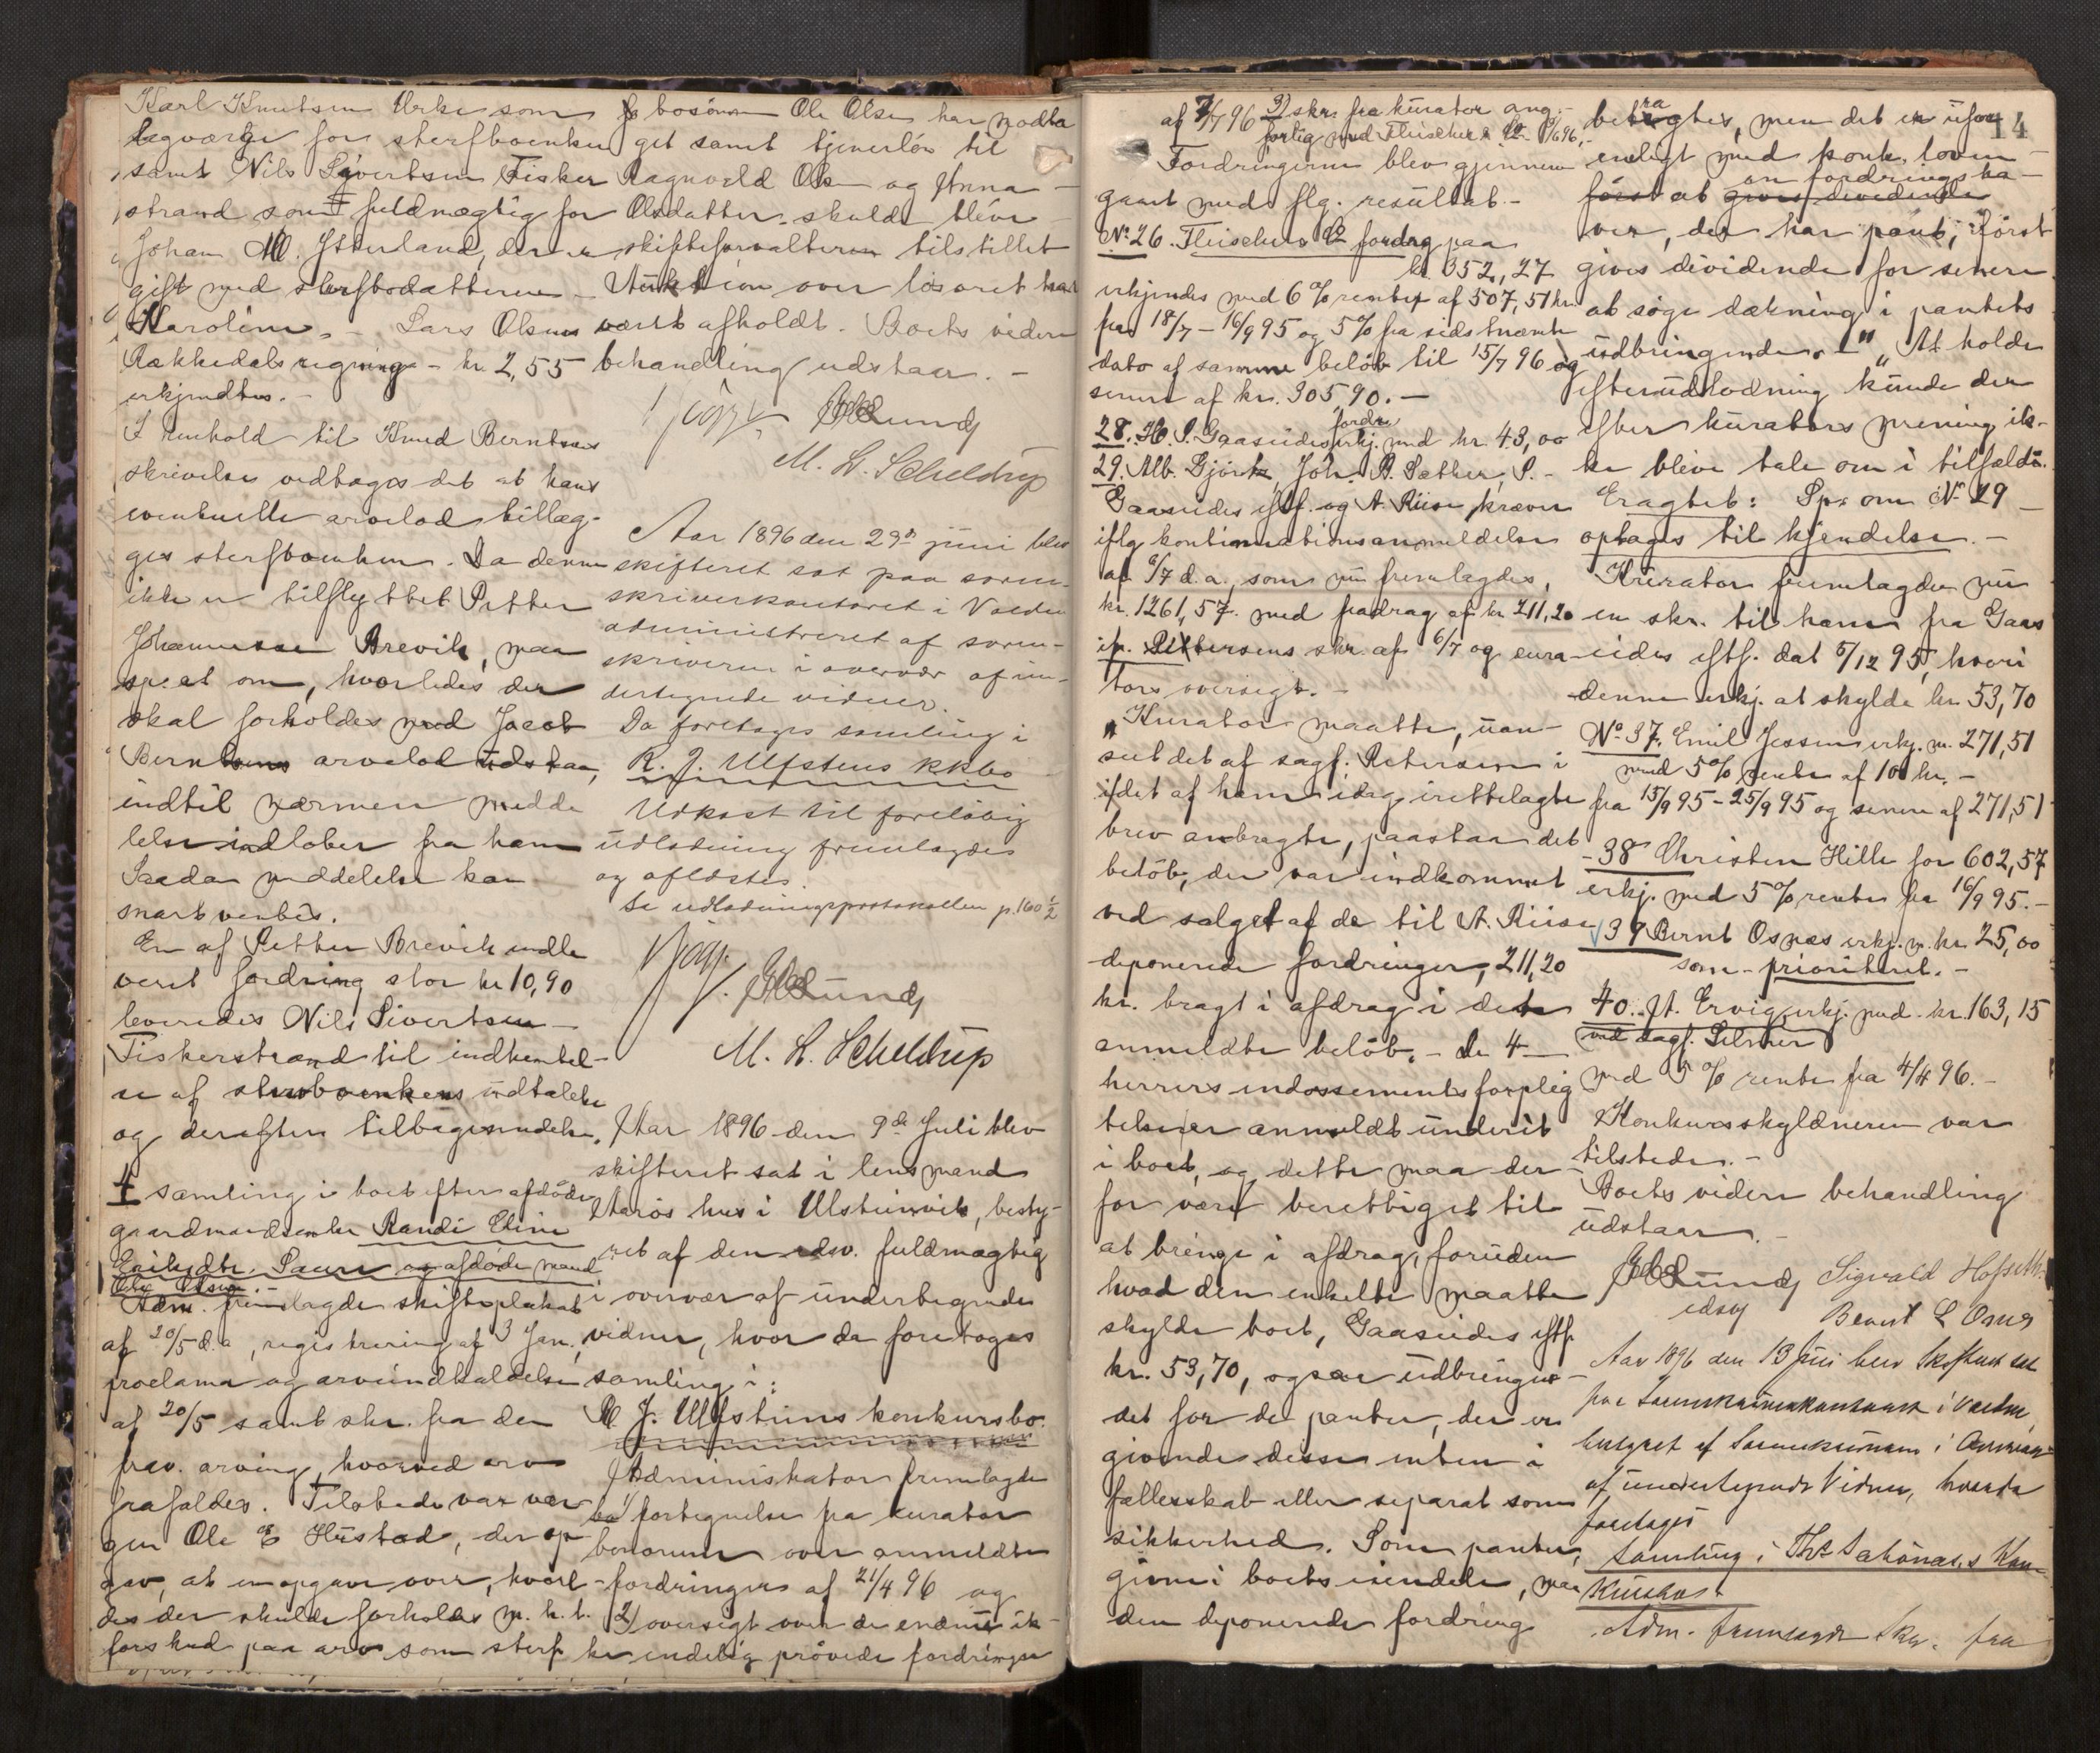 Karl Knutsen Urke som
lagværge for sterfboenken
samt Nils Sivertsen Fisker
strand som fuldmægtig for
Johan M. Ytterland, der er
gift med sterfbodatteren
Karoline. - Lars Olsens
Rækkedals regning - kr. 2,55
erkjendtes. -
I henhold til Knud Berntsens
skrivelse vedtoges det at hans
eventuelle arvelod tillæg-
ges sterfboenken. Da denne
ikke er tilflyttet Petter
Johannessen Brevik, maa
sp. et om, hvorledes der
skal forholdes med Jacob
Berntsens arvelod udstaa,
indtil nærmere medde
lelse indløber fra ham
Saadan meddelelse kan
snart ventes.
En af Petter Brevik indle
veret fordring stor kr 10,90
leveredes Nils Sivertsen
Fiskerstrand til indhentel-
se af sterboenkens udtalelse
og derefter tilbagesendelse.
4 samling i boet efter afdøde
gaardmandsenke Randi Eline
Eriksdtr. Saure og afdøde mand
Ole Olsen. -
Adm. fremlagde skifteplakat
af 20/5 d.a, registrering af 3 Jan.,
proclama og arveindkaldelse
af 20/5 samt skr. fra den
frav. arving, hvorved arv
frafaldes. Tilstede var vær
gen Ole E Hustad, der op
gav, at en opgave over, hvorle-
des der skulde forholdes m. h. t.
forskud paa arv som sterf
bosønnen Ole Olsen har modta
get samt tjenerløn til
Ragnvald Olsen og Anna
Olsdatter, skulde blive
skifteforvalteren tilstillet
Auktion over løsøret har
været afholdt. Boets videre
behandling udstaar. -
J Lund
M. L. Scheldrup
Aar 1896 den 29de juni blev
skifteret sat paa soren-
skriverkontoret i Volden
administreret af soren-
skriveren i overvær af un-
dertegnede vidner.
Da foretoges samling i
R. J. Ulfstens kkbo
Udkast til foreløbig
udlodning fremlagdes
og oplæstes.
Se udlodningsprotokollen p. 160 1/2
J Lund
M. L. Scheldrup
Aar 1896 den 9de Juli blev
skifteret sat i lensmand
Aarøs hus i Ulsteinvik, besty-
ret af den edsv. fuldmægtig
i overvær af undertegnede
vidner, hvor da foretoges
samling i:
R J. Ulfstens konkursbo.
Administrator fremlagde
1) fortegnelse fra kurator
bonorum over anmeldte
fordringer af 21/4 96 og
2) oversigt over de endnu ik-
ke endelig prøvede fordringer
af 7/7 96 3) skr. fra kurator ang.
forlig med Fleischer & Co
Fordringerne blev gjennem
gaaet med flg. resultat. -
No. 26. Fleischer & Co fordrg paa
kr 352,27
erkjendes med 6 % renter af 507,51 kr
fra 18/7 - 16/9 95 og 5% fra sidstnævnte
dato af samme beløb til 15/7 96 og
senere af kr. 305,90. -
28. H. P. Gaasudes fordr. erkj. med kr. 43,00
29. Alb. Gjörtz, Joh. P. Sæther, P.
Gaasudes eftf. og A. Riise kræver
iflg kontinuationsanmeldelse
af 6/7 d.a., som nu fremlagdes,
kr. 1261,57. med fradrag af kr 211,20
if. Petersens skr. af 6/7 og cura-
tors oversigt. -
"Kurator maatte, uan-
seet det af sagf. Petersen i
det af ham idag irettelagte
brev anbragte, paastaa det
beløb, der var indkommet
ved salget af de til A. Riise
deponerede fordringer, 211,20
kr. bragt i afdrag i det
anmeldte beløb. - De 4
herrers endossementsforplig
telser er anmeldt underet
i boet, og dette maa der
for være berettiget til
at bringe i afdrag, foruden
hvad den enkelte maatte
skylde boet, Gaasudes eftf.
kr. 53,70, ogsaa udbringen-
det for de panter, der er
givende disse enten i
fællesskab eller separat som
sikkerhed. Som panter,
givne i boets eiendele, maa
den deponerede fordring
14
betragtes, men det er ufor
eneligt med konk. loven
at en fordringsha-
ver, der har pant, först
gives dividende for senere
at søge dækning i pantets
udbringende. -" At holde
efterudlodning kunde der
efter kurators mening ik-
ke blive tale om i tilfældet.
Eragtet: Sp. om No 29
optages til kjendelse. -
Kurator fremlagde nu
en skr. til ham fra Gaas
udes eftf. dat 5/12 95, hvori
denne erkj. at skylde kr. 53,70
No. 37. Emil Jessen erkj. m. 271,51
med 5% rente af 100 kr. -
fra 15/9 95 - 25/9 95 og senere af 271,51
38 Christen Hille for 602,57
erkj. med 5% renter fra 16/9 95. -
39 Bernt Osnæs erkj. m. kr. 25,00
som - prioriteret. -
40. A. Ervig erkj. med. kr. 163,15
ved sagf. Selmer
med 5% rente fra 4/4 96. -
Konkursskyldneren var
tilstede. -
Boets videre behandling
udstaar. -
Lund Sigvald Hofseth
edsv Bernt L Osnes
Aar 1896 den 13 Juli blev Skifteret sat
paa Sorenskriverkontoret i Volden
bestyret af Sorenskriveren i Overvær
af undertegnede Vidner, hvorda
foretoges
Samling i Kon-
kursbo
Adm. fremlagde Skr. fra